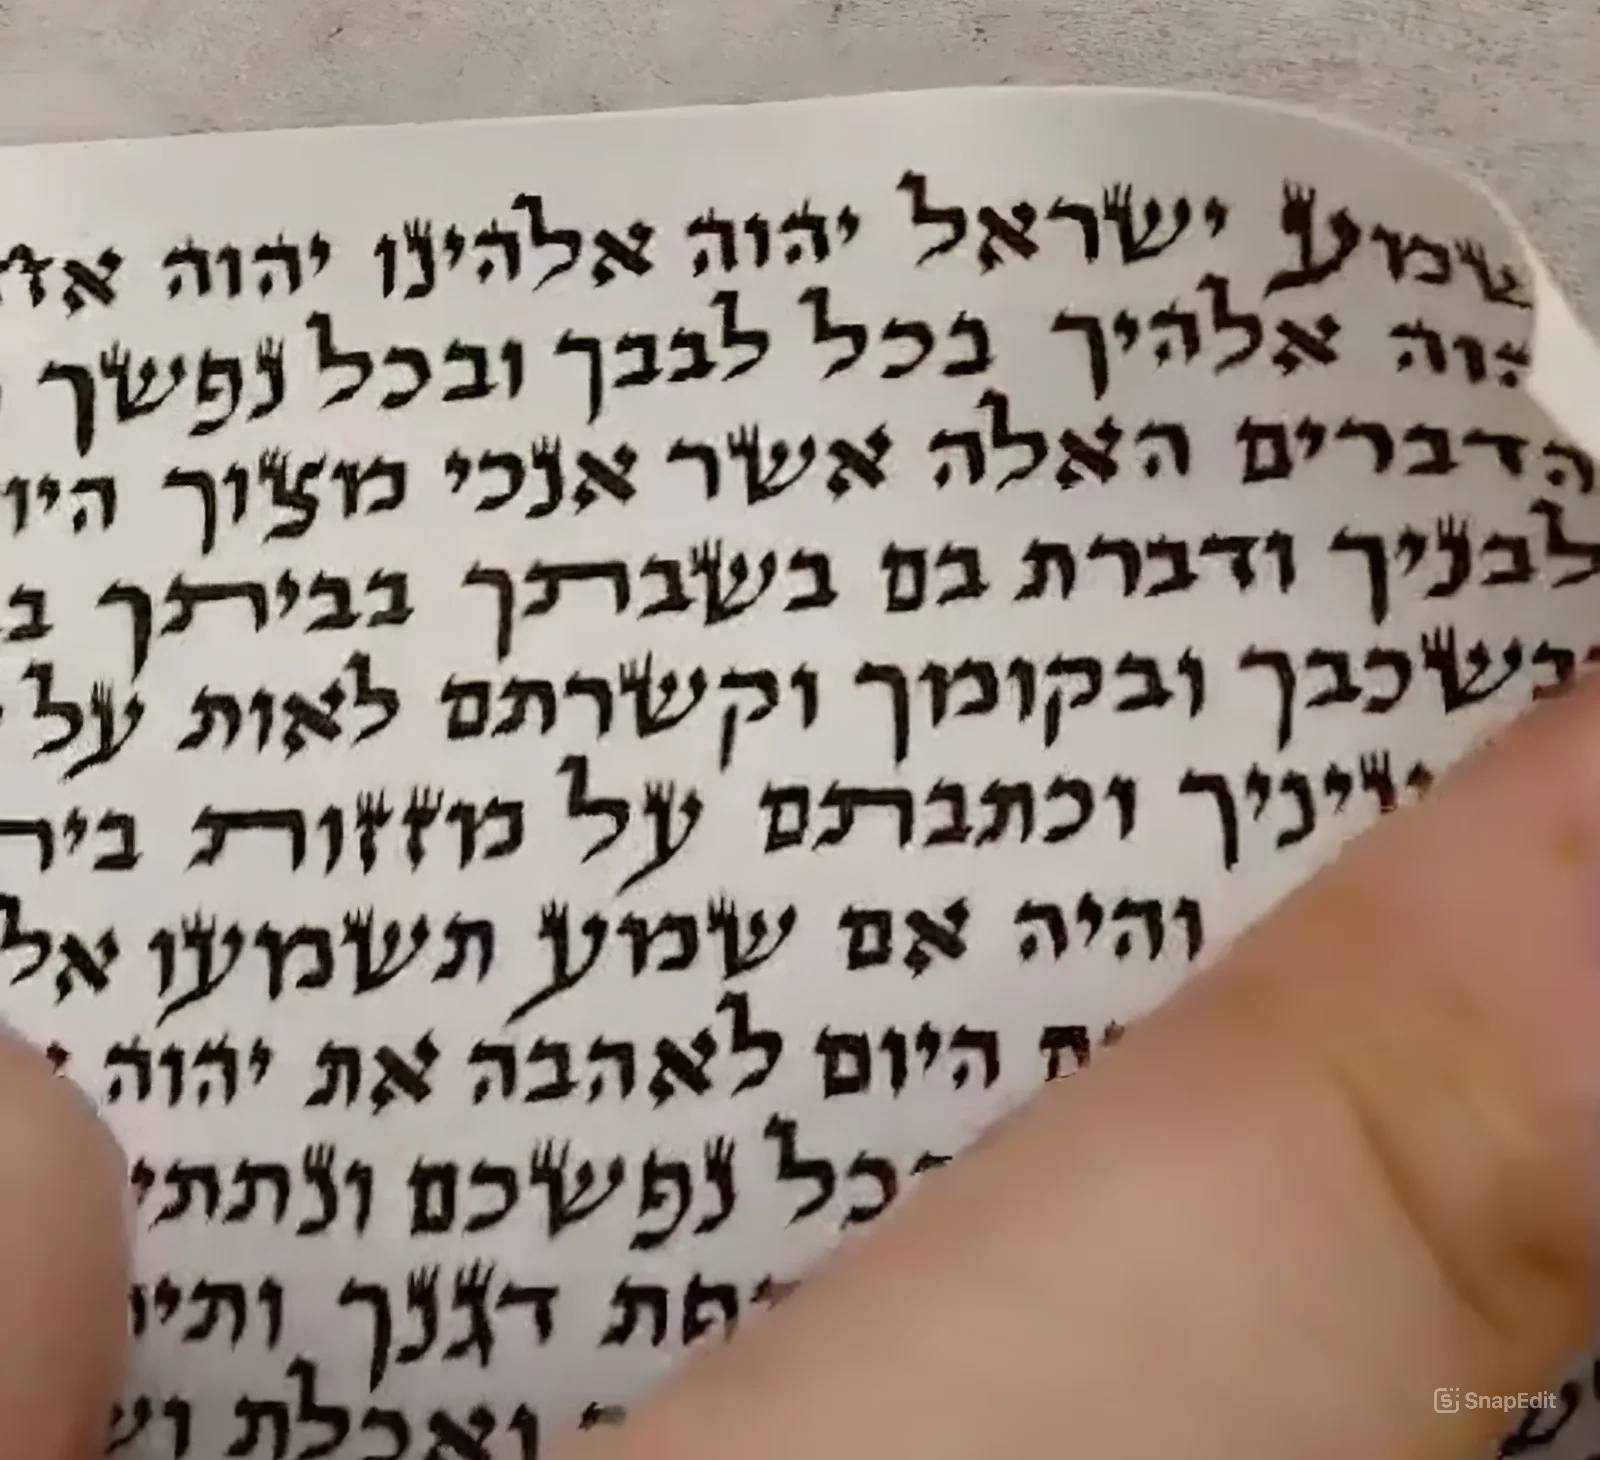 שמע ישראל יהוה אלהינו יהוה
אלהיך בכל לבבך ובכל נפשך
הדברים האלה אשר אנכי מצוך
לבניך ודברת בם בשבתך בביתך
ובשכבך ובקומך וקשרתם לאות על
וכתבתם על מזזות
והיה אם שמע תשמעו אל
היום לאהבה את יהוה
נפשכם ונתתי
דגנך
ואכלת
SnapEdit